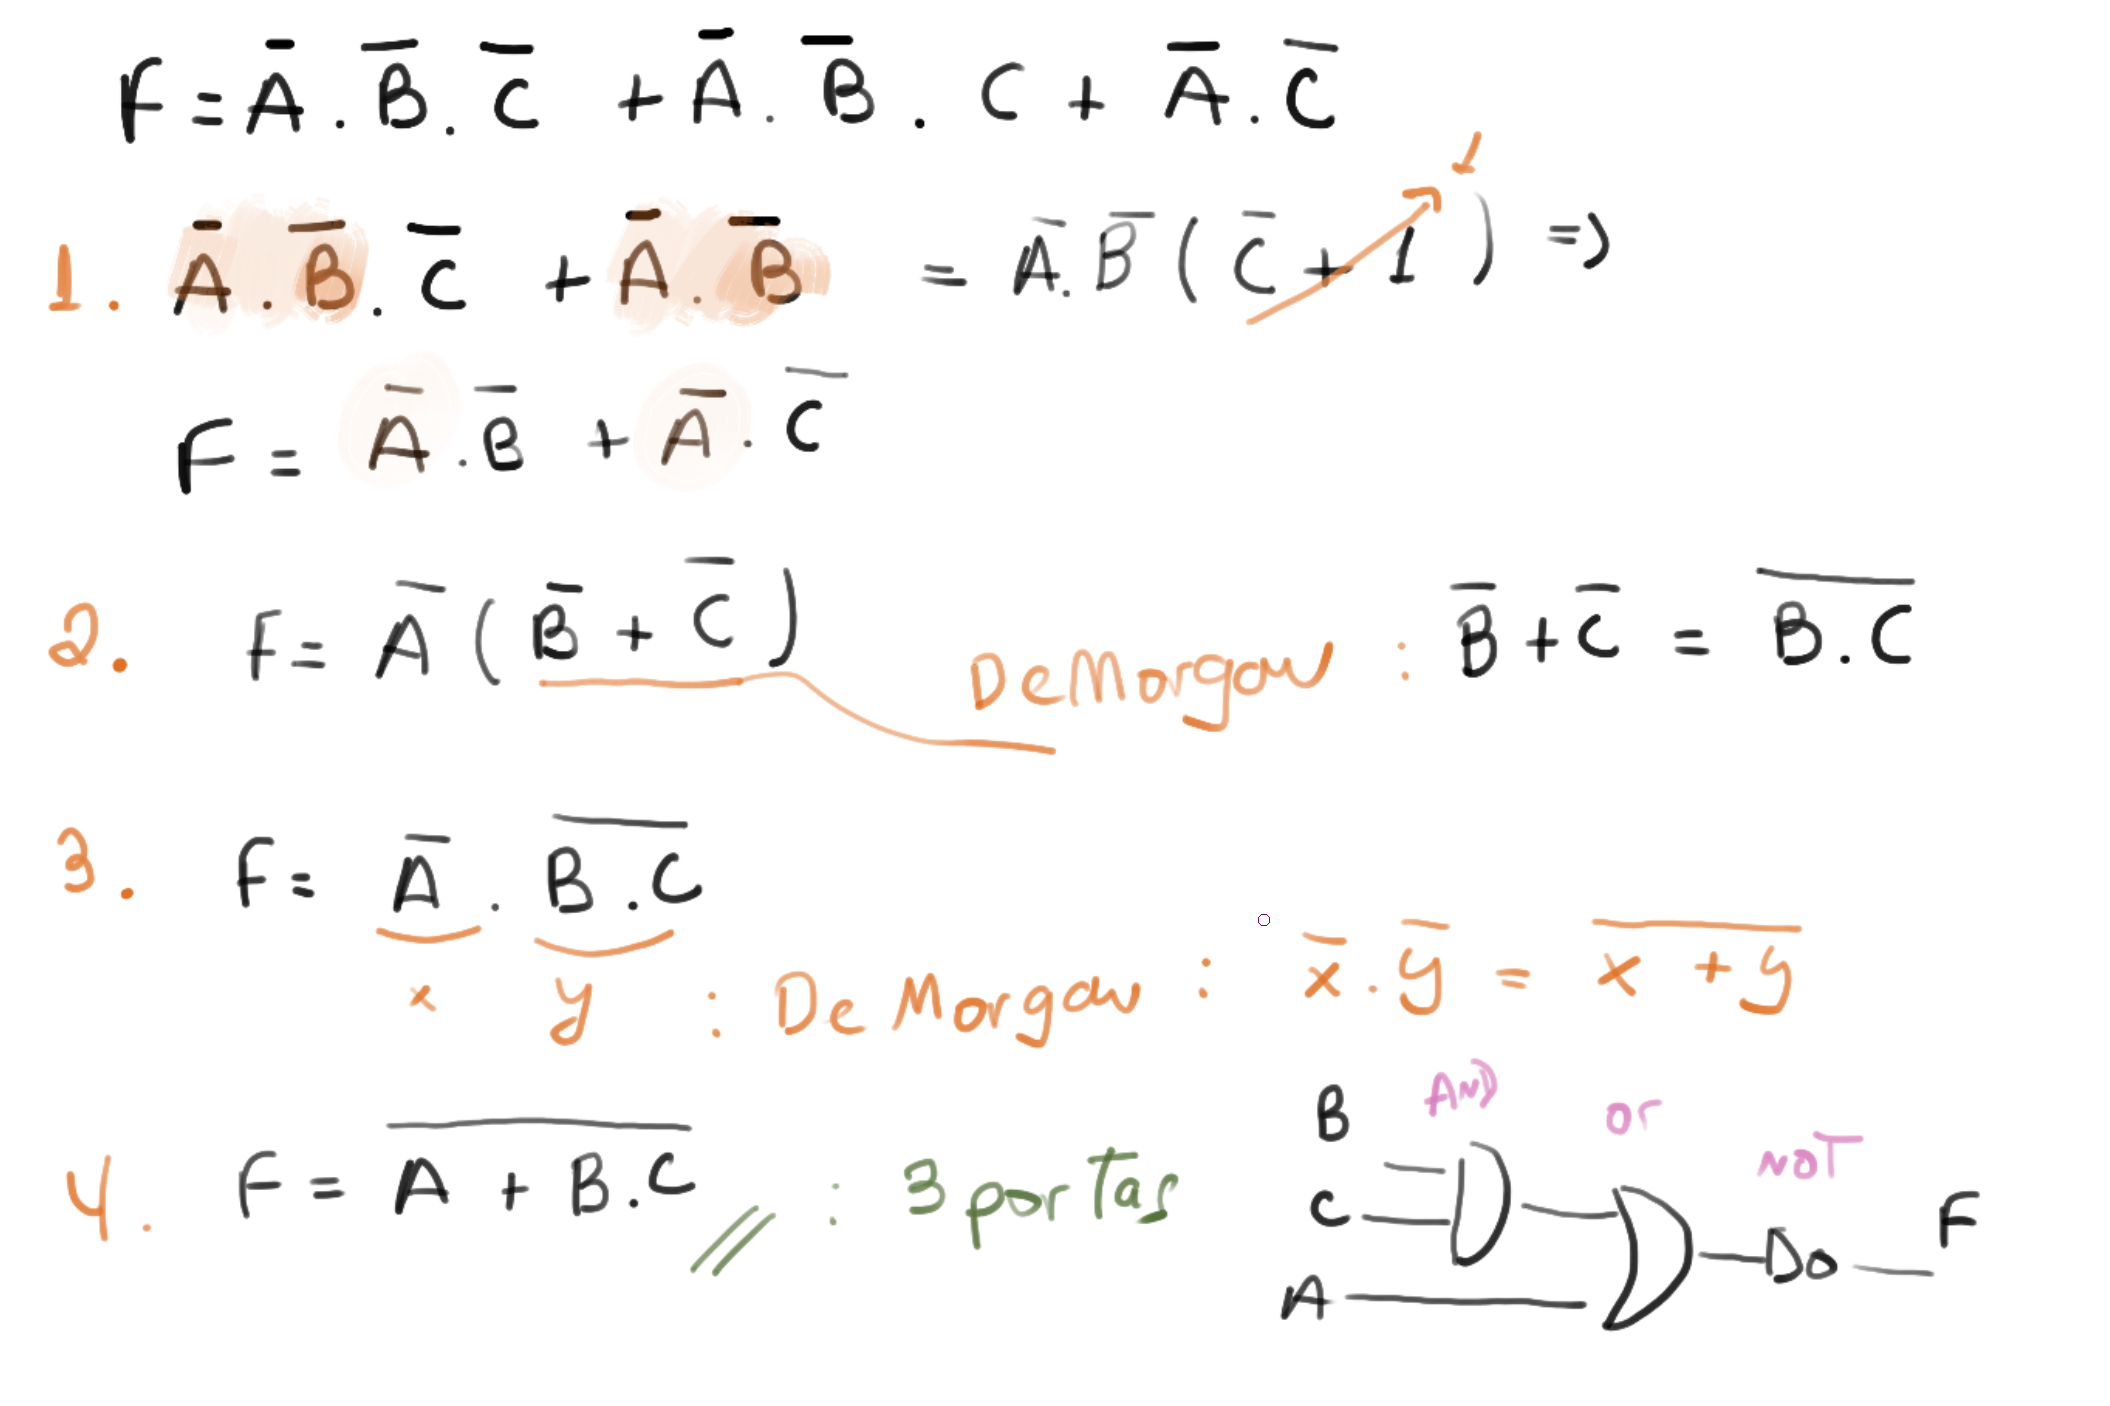 F = A̅ . B̅ . C̅ + A̅ . B̅ . C + A̅ . C̅
1
1. A̅ . B̅ . C̅ + A̅ . B̅ = A̅ . B̅ ( C̅ + 1 ) =>
F = A̅ . B̅ + A̅ . C̅
2. F = A̅ ( B̅ + C̅ ) DeMorgan : B̅ + C̅ = B̅ ̅.̅ ̅C̅
3. F = A̅ . B̅ ̅.̅ ̅C̅
x y : De Morgan : x̅ . y̅ = x̅ ̅+̅ ̅y̅
4. F = A̅ ̅+̅ ̅B̅ ̅.̅ ̅C̅ : 3 portas
B AND
or
NOT
C
F
A